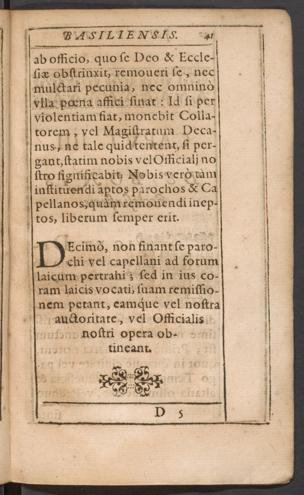 BASILIENSIS. 41
ab officio, quo se Deo & Eccle-
siæ obstrinxit, remoueri se, nec
mulctari pecunia, nec omninò
vlla pœna affici sinat: Id si per
violentiam fiat, monebit Colla-
torem, vel Magistratum Deca-
nus, ne tale quid tentent, si per-
gant, statim nobis vel Officialj no
stro significabit. Nobis verò tàm
instituendi aptos parochos & Ca
pellanos, quàm remouendi inep-
tos, liberum semper erit.
DEcimò, non sinant se paro-
chi vel capellani ad forum
laicum pertrahi; sed in ius co-
ram laicis vocati, suam remissio-
nem petant, eamque vel nostra
auctoritate, vel Officialis
nostri opera ob-
tineant.
D 5